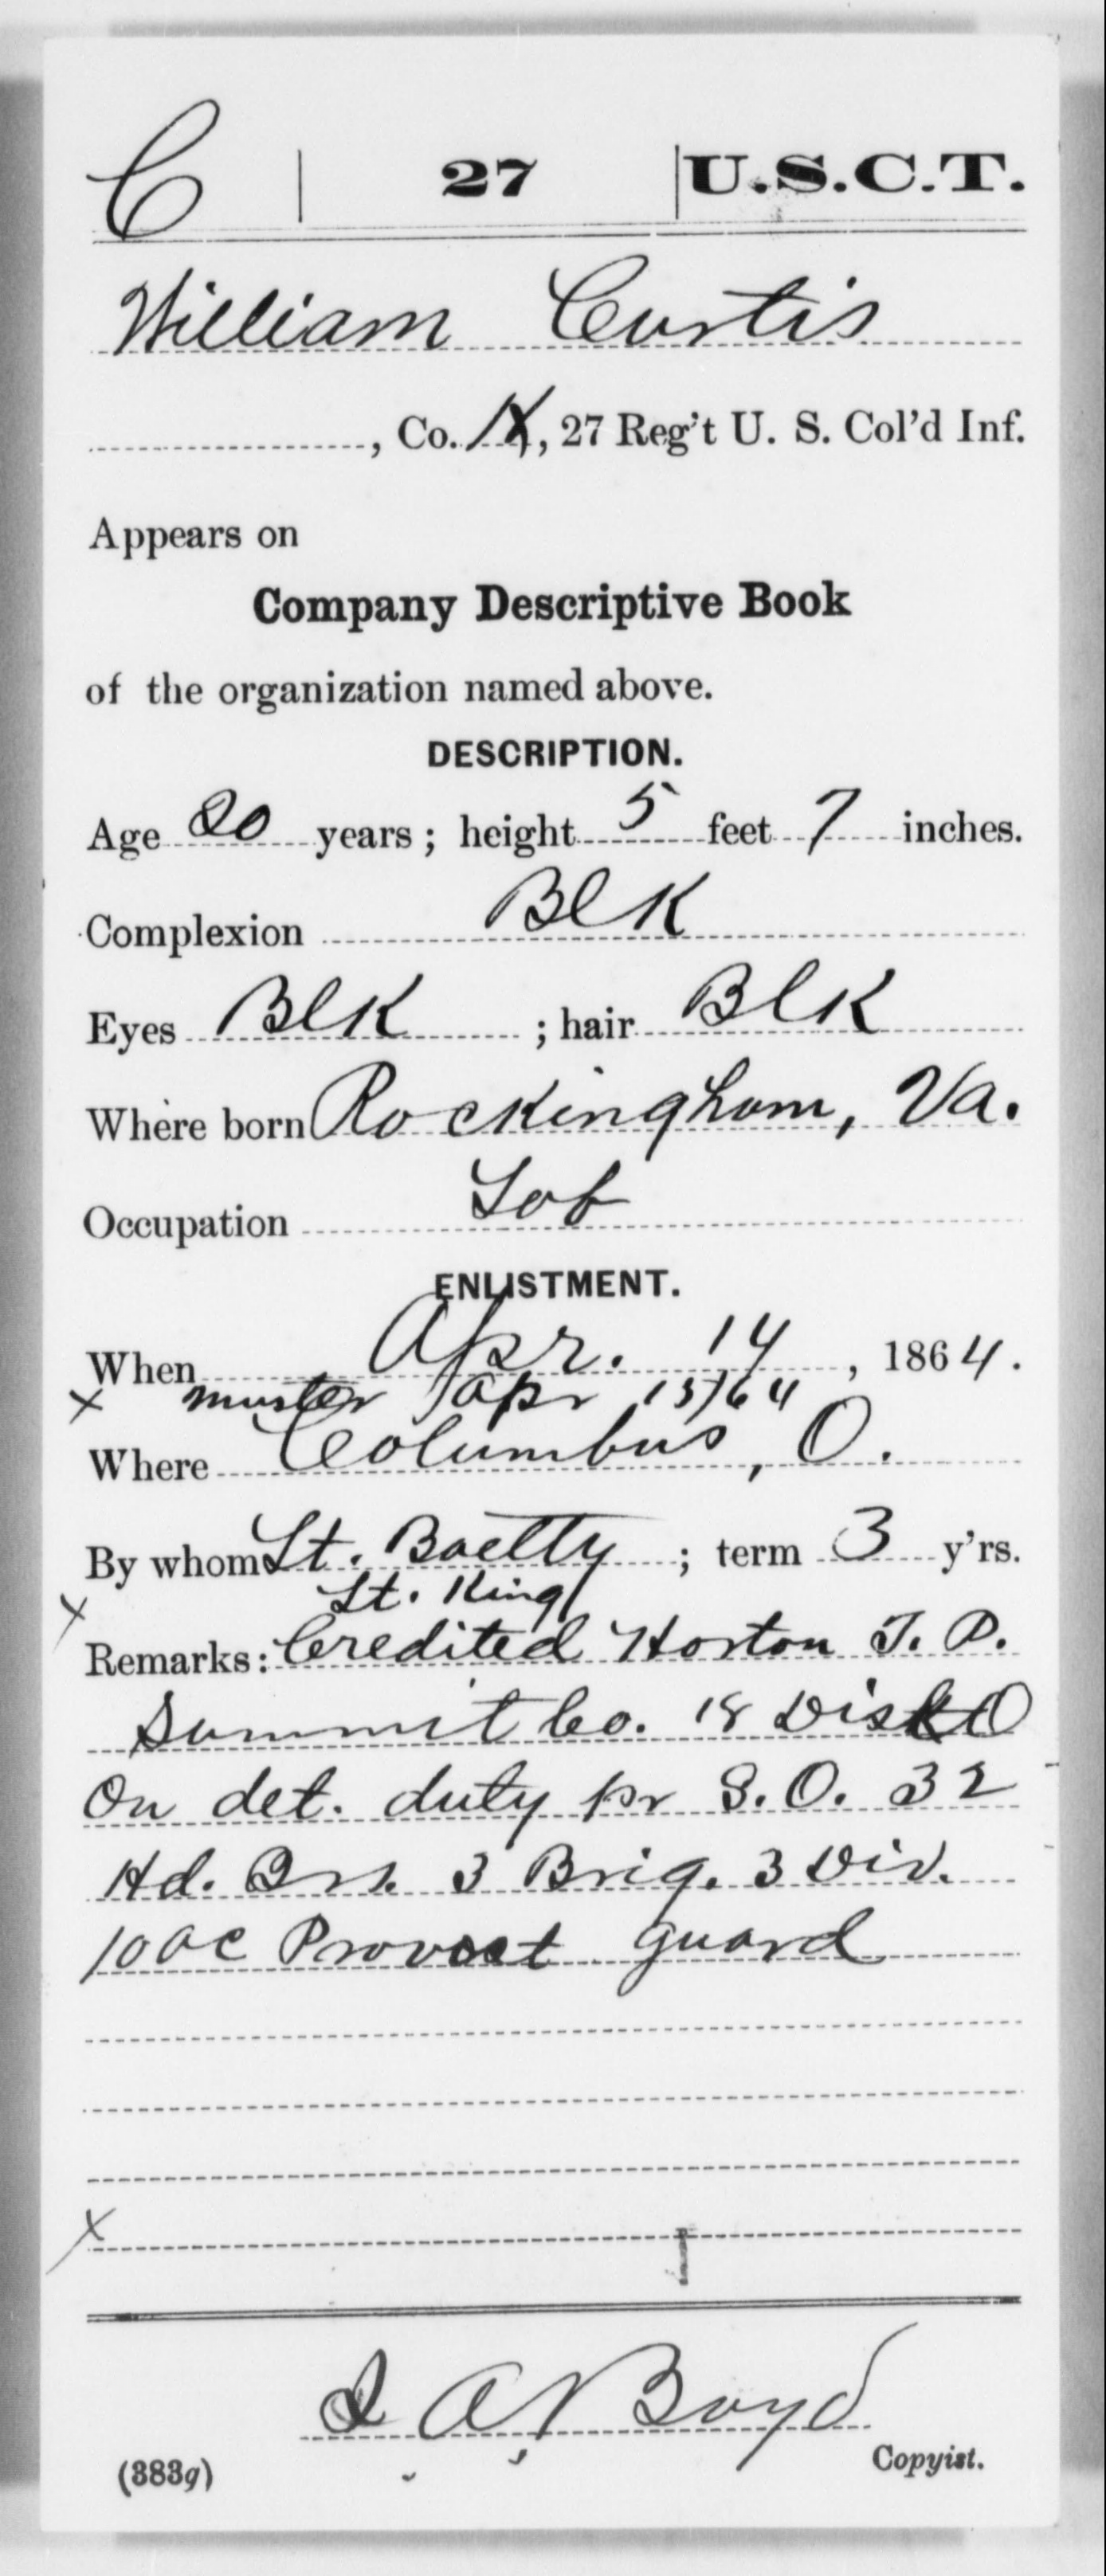 C | 27 | U.S.C.T.
William Curtis
, Co. K, 27 Reg't U. S. Col'd Inf.
Appears on
Company Descriptive Book
of the organization named above.
DESCRIPTION.
Age 20 years; height 5 feet 7 inches.
Complexion Blk
Eyes Blk ; hair Blk
Where born Rockingham, Va.
Occupation Lab
ENLISTMENT.
When Apr. 14, 1864.
x muster Apr 15/64
Where Columbus, O.
By whom Lt. ; term 3 y'rs.
Lt. King
x
Remarks: Credited T. P.
Summit Co. 18 Dist O
On det. duty pr S.O. 32
Hd. Qrs. 3 Brig. 3 Div.
10 AC Provost guard
x
Boyd
(383g) Copyist.